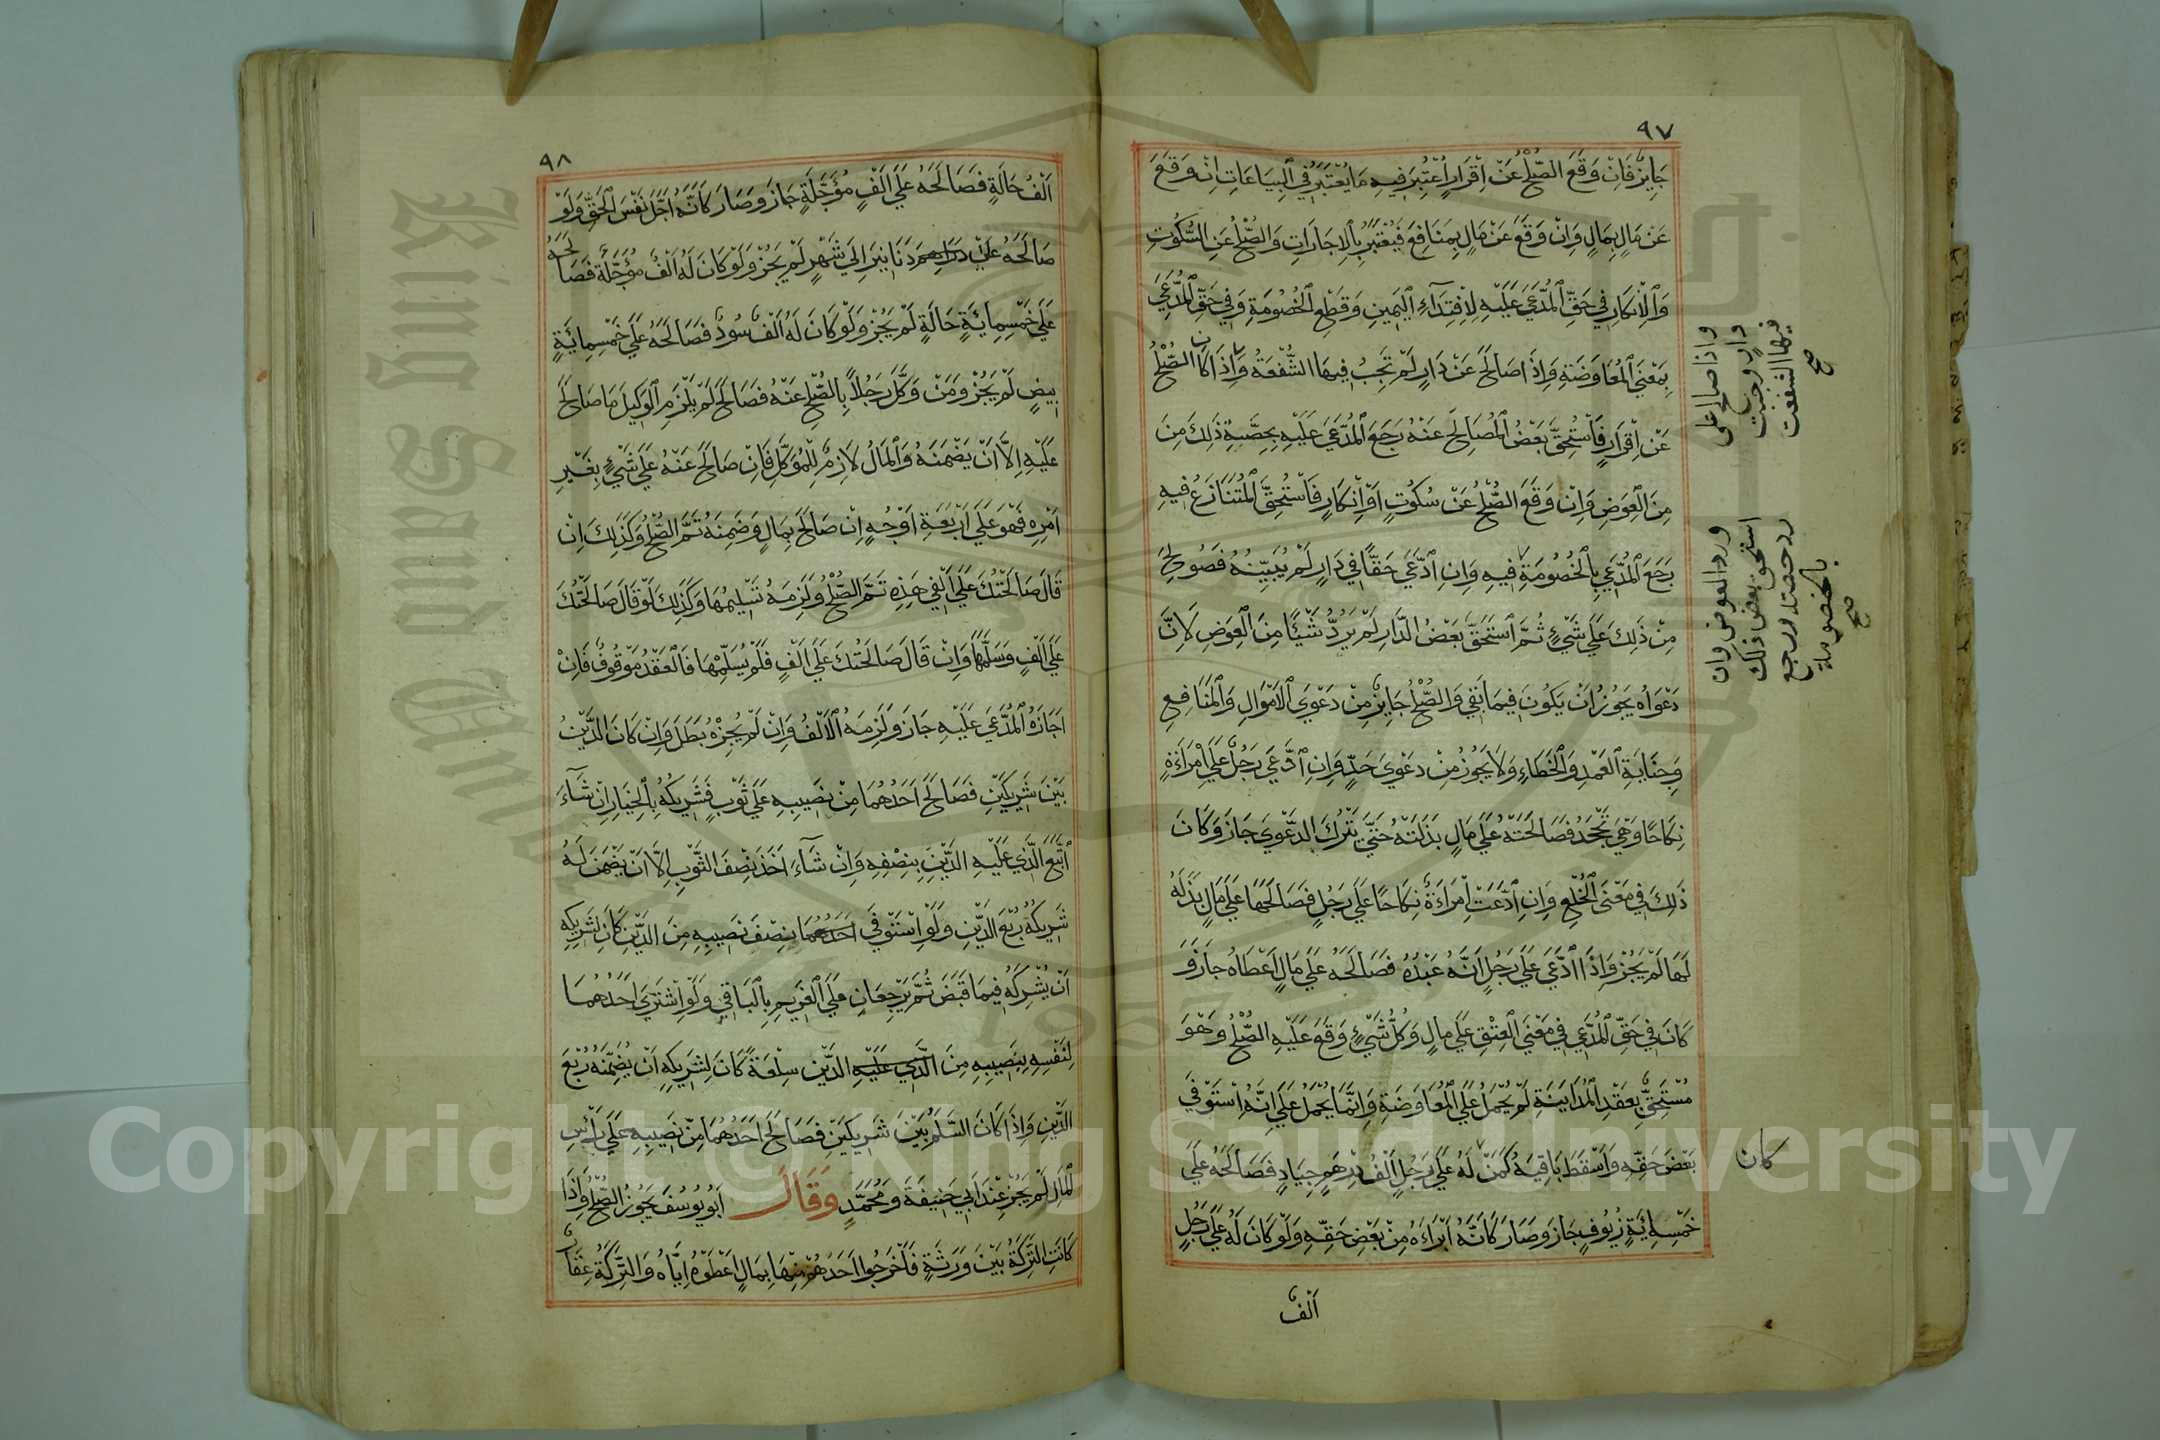 ٩٧
جَايِزٌ فَاِنْ وَقَعَ الصُّلْحُ عَنْ اِقْرَارٍ اُعْتُبِرَ فِيهِ مَا يُعْتَبَرُ فِي الْبِيَاعَاتِ اِنْ وَقَعَ
عَنْ مَالٍ بِمَالٍ وَاِنْ وَقَعَ عَنْ مَالٍ بِمَنَافِعَ فَيُعْتَبَرُ بِالْاِجَارَاتِ وَالصُّلْحُ عَنِ السُّكُوتِ
وَالْاِنْكَارِ فِي حَقِّ الْمُدَّعَى عَلَيْهِ لِاِفْتِدَاءِ الْيَمِينِ وَقَطْعِ الْخُصُومَةِ وَفِي حَقِّ الْمُدَّعِي
بِمَعْنَى الْمُعَاوَضَةِ وَاِذَا صَالَحَ عَنْ دَارٍ لَمْ تَجِبْ فِيهَا الشُّفْعَةُ وَاِذَا كَانَ الصُّلْحُ
عَنْ اِقْرَارٍ فَاسْتُحِقَّ بَعْضُ الْمُصَالَحِ عَنْهُ رَجَعَ الْمُدَّعَى عَلَيْهِ بِحِصَّةِ ذَلِكَ مِنَ
مِنَ الْعِوَضِ وَاِنْ وَقَعَ الصُّلْحُ عَنْ سُكُوتٍ اَوْ اِنْكَارٍ فَاسْتُحِقَّ الْمُتَنَازَعُ فِيهِ
رَجَعَ الْمُدَّعِي بِالْخُصُومَةِ فِيهِ وَاِنِ ادَّعَى حَقًّا فِي دَارٍ لَمْ يُبَيِّنْهُ فَصُولِحَ
مِنْ ذَلِكَ عَلَى شَيْءٍ ثُمَّ اسْتَحَقَّ بَعْضُ الدَّارِ لَمْ يَرُدَّ شَيْئًا مِنَ الْعِوَضِ لِاَنَّ
دَعْوَاهُ يَجُوزُ اَنْ يَكُونَ فِيمَا بَقِيَ وَالصُّلْحُ جَايِزٌ مِنْ دَعْوَى الْاَمْوَالِ وَالْمَنَافِعِ
وَجِنَايَةِ الْعَمْدِ وَالْخَطَاءِ وَلَا يَجُوزُ مِنْ دَعْوَى حَدٍّ وَاِنِ ادَّعَى رَجُلٌ عَلَى امْرَاَةٍ
نِكَاحًا وَهِيَ تَجْحَدُ فَصَالَحَتْهُ عَلَى مَالٍ بَذَلَتْهُ حَتَّى يَتْرُكَ الدَّعْوَى جَازَ وَكَانَ
ذَلِكَ فِي مَعْنَى الْخُلْعِ وَاِنِ ادَّعَتْ اِمْرَاَةٌ نِكَاحًا عَلَى رَجُلٍ فَصَالَحَهَا عَلَى مَالٍ بَذَلَهُ
لَهَا لَمْ يَجُزْ وَاِذَا ادَّعَى عَلَى رَجُلٍ اَنَّهُ عَبْدُهُ فَصَالَحَهُ عَلَى مَالٍ اَعْطَاهُ جَازَ وَ
كَانَ فِي حَقِّ الْمُدَّعِي فِي مَعْنَى الْعِتْقِ عَلَى مَالٍ وَكُلُّ شَيْءٍ وَقَعَ عَلَيْهِ الصُّلْحُ وَهُوَ
مُسْتَحَقٌّ بِعَقْدِ الْمُدَايَنَةِ لَمْ يُحْمَلْ عَلَى الْمُعَاوَضَةِ وَاِنَّمَا يُحْمَلُ عَلَى اَنَّهُ اِسْتَوْفَى
بَعْضَ حَقِّهِ وَاَسْقَطَ بَاقِيَهُ كَمَنْ لَهُ عَلَى رَجُلٍ اَلْفُ دِرْهَمٍ جِيَادٍ فَصَالَحَهُ عَلَى
خَمْسِمِائَةٍ زُيُوفٍ جَازَ وَصَارَ كَاَنَّهُ اَبْرَاَهُ مِنْ بَعْضِ حَقِّهِ وَلَوْ كَانَ لَهُ عَلَى رَجُلٍ
اَلْفٌ
واذا صالح على
دار وجبت
فيها الشفعة
صح
ورد العوض وان
استحق بعض ذلك
رد حصته ورجع
بالخصومة
صح
كان
٩٨
اَلْفٌ حَالَّةٍ فَصَالَحَهُ عَلَى اَلْفٍ مُؤَجَّلَةٍ جَازَ وَصَارَ كَاَنَّهُ اَجَّلَ نَفْسَ الْحَقِّ وَلَوْ
صَالَحَهُ عَلَى دَرَاهِمَ دَنَانِيرَ اِلَى شَهْرٍ لَمْ يَجُزْ وَلَوْ كَانَ لَهُ اَلْفٌ مُؤَجَّلَةٌ فَصَالَحَهُ
عَلَى خَمْسِمِائَةٍ حَالَّةٍ لَمْ يَجُزْ وَلَوْ كَانَ لَهُ اَلْفٌ سُودٌ فَصَالَحَهُ عَلَى خَمْسِمِائَةٍ
بِيضٍ لَمْ يَجُزْ وَمَنْ وَكَّلَ رَجُلًا بِالصُّلْحِ عَنْهُ فَصَالَحَ لَمْ يَلْزَمِ الْوَكِيلَ مَا صَالَحَ
عَلَيْهِ اِلَّا اَنْ يَضْمَنَهُ وَالْمَالُ لَازِمٌ لِلْمُوَكِّلِ فَاِنْ صَالَحَ عَنْهُ عَلَى شَيْءٍ بِغَيْرِ
اَمْرِهِ فَهُوَ عَلَى اَرْبَعَةِ اَوْجُهٍ اِنْ صَالَحَ بِمَالٍ وَضَمِنَهُ تَمَّ الصُّلْحُ وَكَذَلِكَ اِنْ
قَالَ صَالَحْتُكَ عَلَى اَلْفِي هَذِهِ تَمَّ الصُّلْحُ وَلَزِمَهُ تَسْلِيمُهَا وَكَذَلِكَ لَوْ قَالَ صَالَحْتُكَ
عَلَى اَلْفٍ وَسَلَّمَهَا وَاِنْ قَالَ صَالَحْتُكَ عَلَى اَلْفٍ فَلَمْ يُسَلِّمْهَا فَالْعَقْدُ مَوْقُوفٌ فَاِنْ
اَجَازَهُ الْمُدَّعَى عَلَيْهِ جَازَ وَلَزِمَهُ الْاَلْفُ وَاِنْ لَمْ يُجِزْهُ بَطَلَ وَاِنْ كَانَ الدَّيْنُ
بَيْنَ شَرِيكَيْنِ فَصَالَحَ اَحَدُهُمَا مِنْ نَصِيبِهِ عَلَى ثَوْبٍ فَشَرِيكُهُ بِالْخِيَارِ اِنْ شَاءَ
اتَّبَعَ الَّذِي عَلَيْهِ الدَّيْنُ بِنِصْفِهِ وَاِنْ شَاءَ اَخَذَ نِصْفَ الثَّوْبِ اِلَّا اَنْ يَضْمَنَ لَهُ
شَرِيكُهُ رُبْعَ الدَّيْنِ وَلَوْ اِسْتَوْفَى اَحَدُهُمَا بِنِصْفِ نَصِيبِهِ مِنَ الدَّيْنِ كَانَ لِشَرِيكِهِ
اَنْ يُشْرِكَهُ فِيمَا قَبَضَ ثُمَّ يَرْجِعَانِ عَلَى الْغَرِيمِ بِالْبَاقِي وَلَوِ اشْتَرَى اَحَدُهُمَا
لِنَفْسِهِ بِنَصِيبِهِ مِنَ الَّذِي عَلَيْهِ الدَّيْنِ سِلْعَةً كَانَ لِشَرِيكِهِ اَنْ يُضَمِّنَهُ رُبْعَ
الدَّيْنِ وَاِذَا كَانَ السَّلَمُ بَيْنَ شَرِيكَيْنِ فَصَالَحَ اَحَدُهُمَا مِنْ نَصِيبِهِ عَلَى رَأْسِ
الْمَالِ لَمْ يَجُزْ عِنْدَ اَبِي حَنِيفَةَ وَمُحَمَّدٍ وَقَالَ اَبُو يُوسُفَ يَجُوزُ الصُّلْحُ وَاِذَا
كَانَتِ التَّرِكَةُ بَيْنَ وَرَثَةٍ فَاَخْرَجُوا اَحَدَهُمْ مِنْهَا بِمَالٍ اَعْطَوْهُ اِيَّاهُ وَالتَّرِكَةُ عَقَارٌ
King Saud University
Copyright © King Saud University